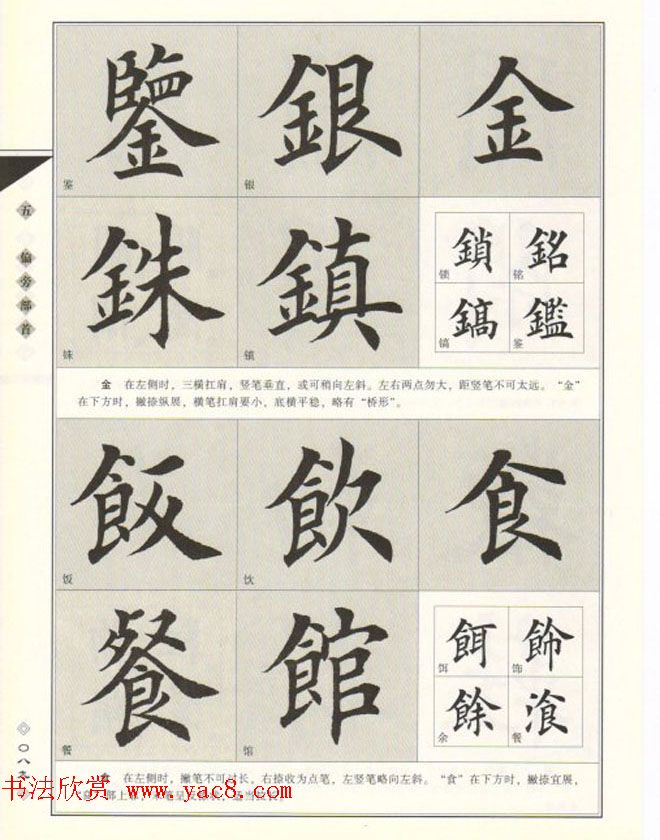 鑒 銀 金
鉴 银
銖 鎮 鎖 銘
锁 铭
鎬 鑑
铢 镇 镐 鉴
金 在左侧时,三横扛肩,竖笔垂直,或可稍向左斜。左右两点勿大,距竖笔不可太远。“金”
在下方时,撇捺纵展,横笔扛肩要小,底横平稳,略有“桥形”。
飯 飲 食
饭 饮
餐 館 餌 飾
饵 饰
餘 飡
余 餐
餐 馆
五 偏旁部首
食 在左侧时,撇笔不可过长,右捺收为点笔,左竖笔略向左斜。“食”在下方时,撇捺宜展,
书法欣赏 www.yac8.com